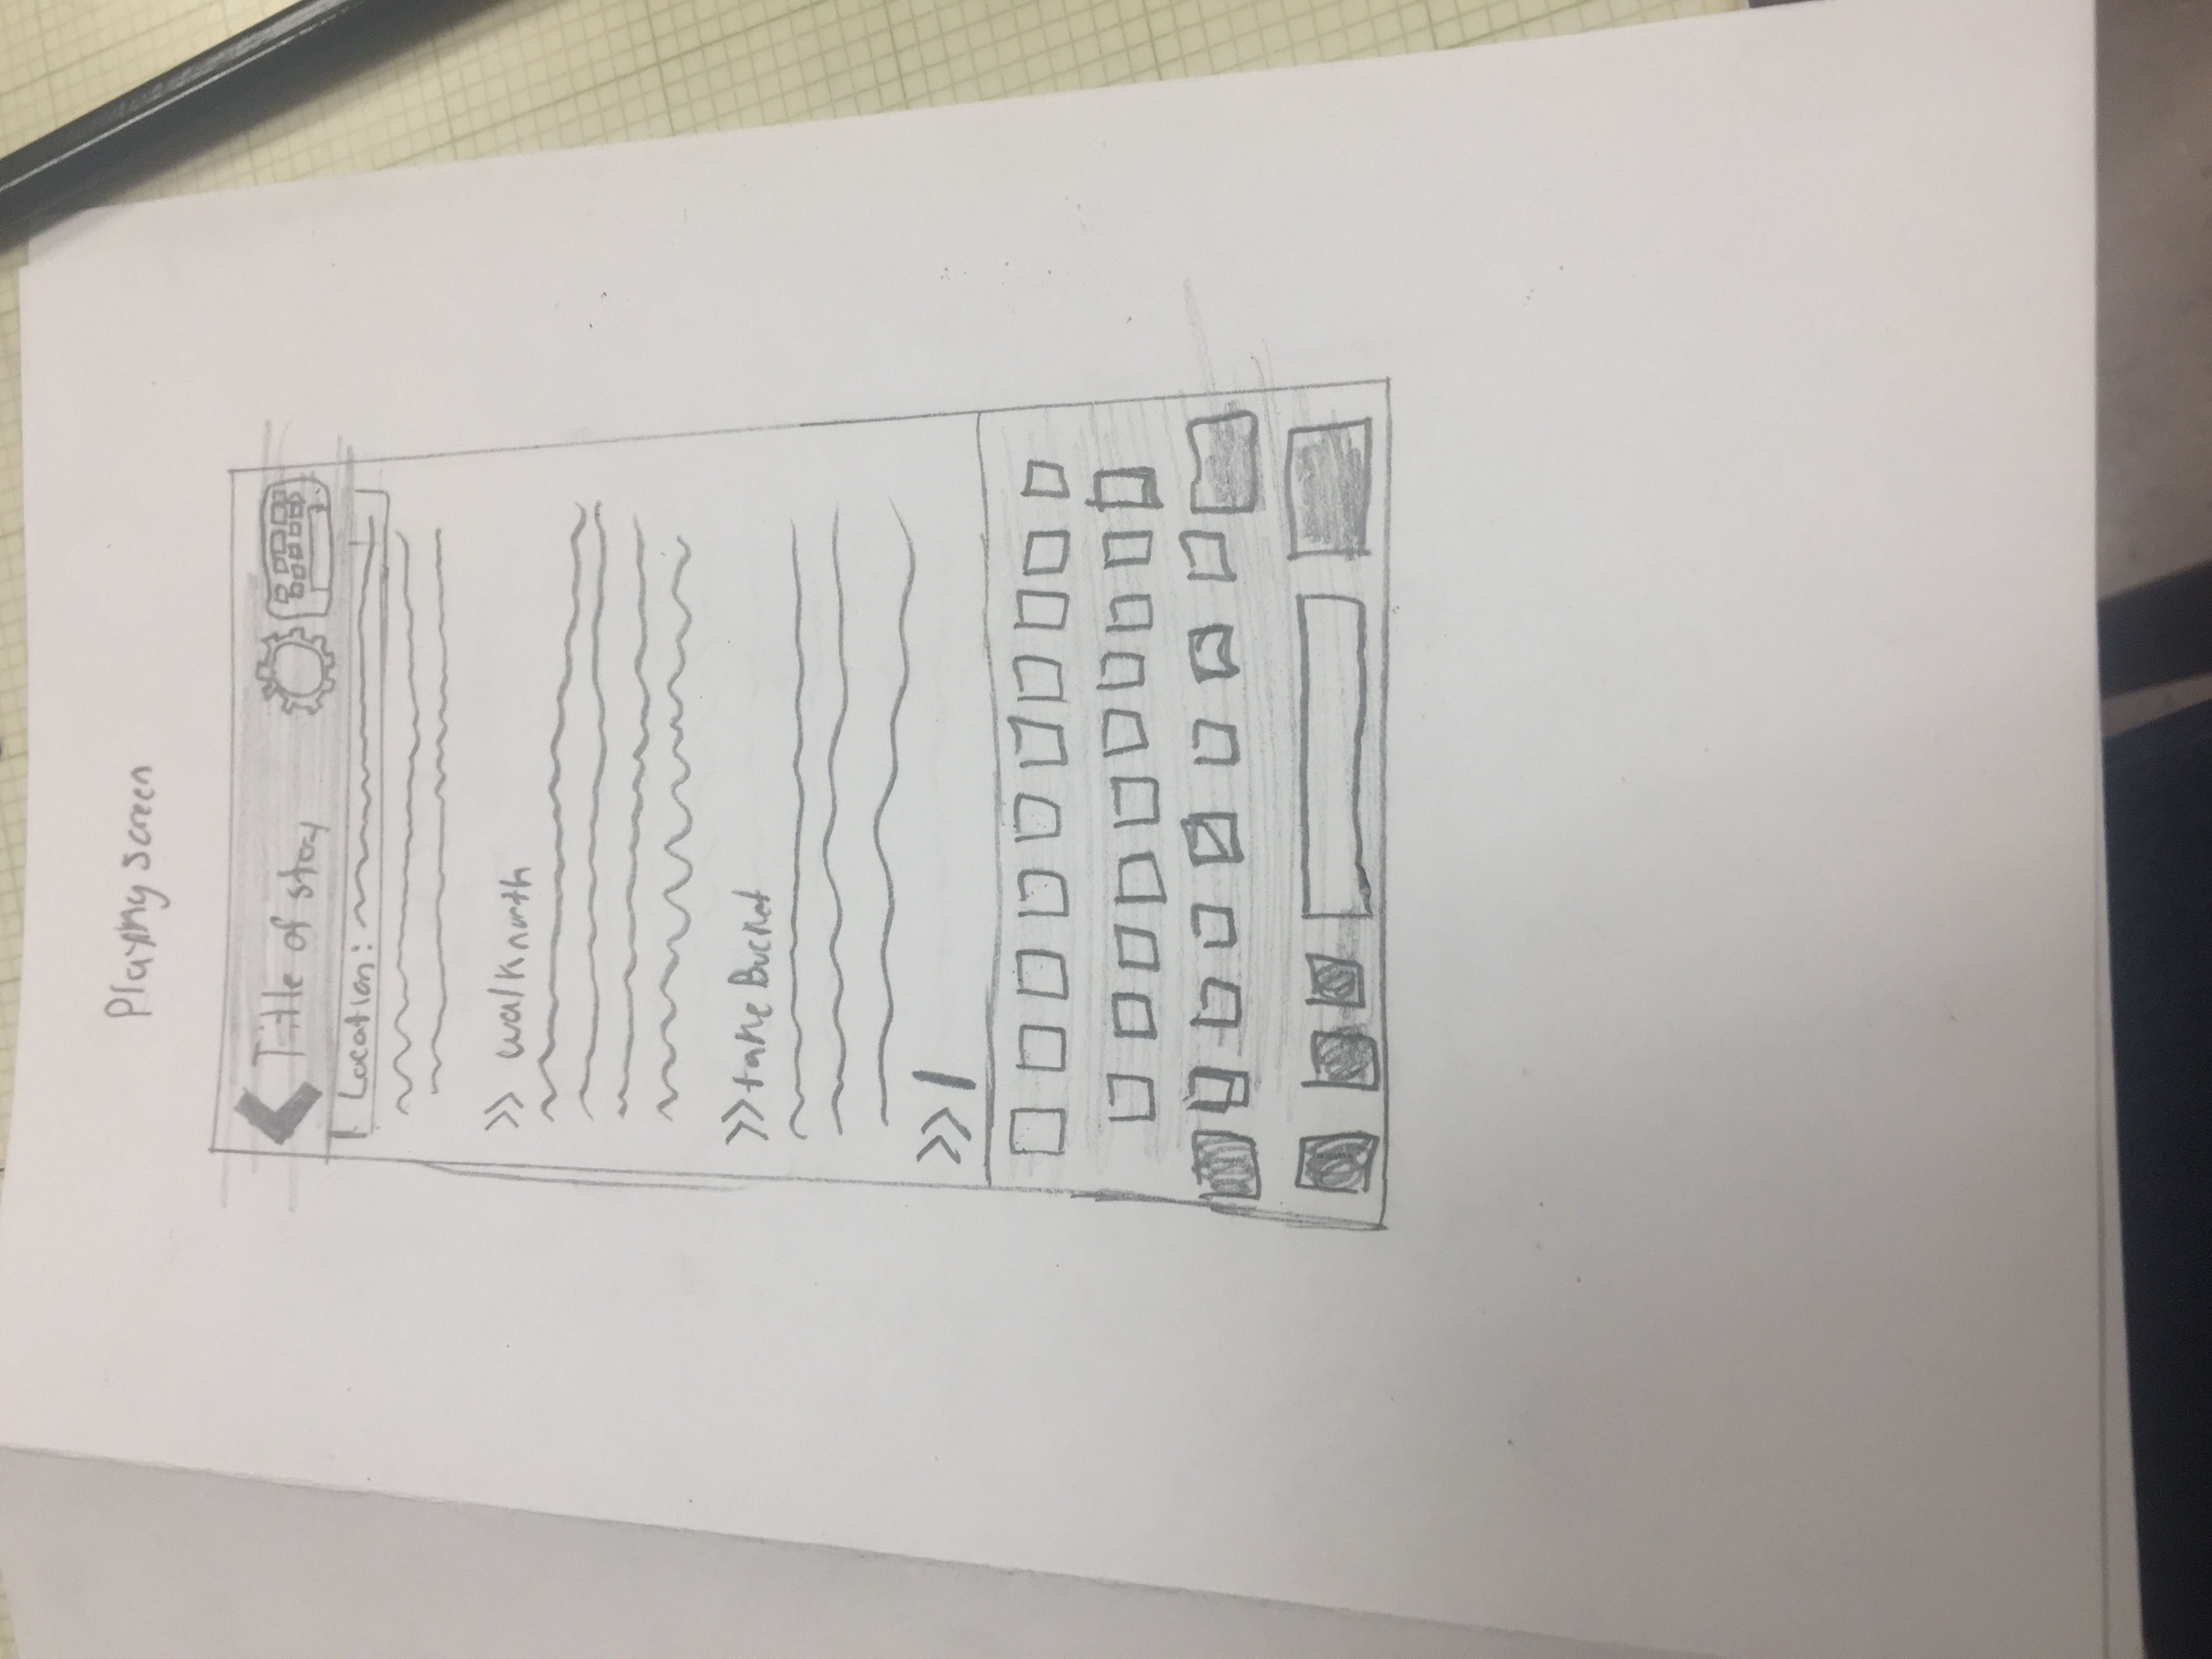 Playing screen
Title of story
Location:
>> walk north
>> take Bucket
>>